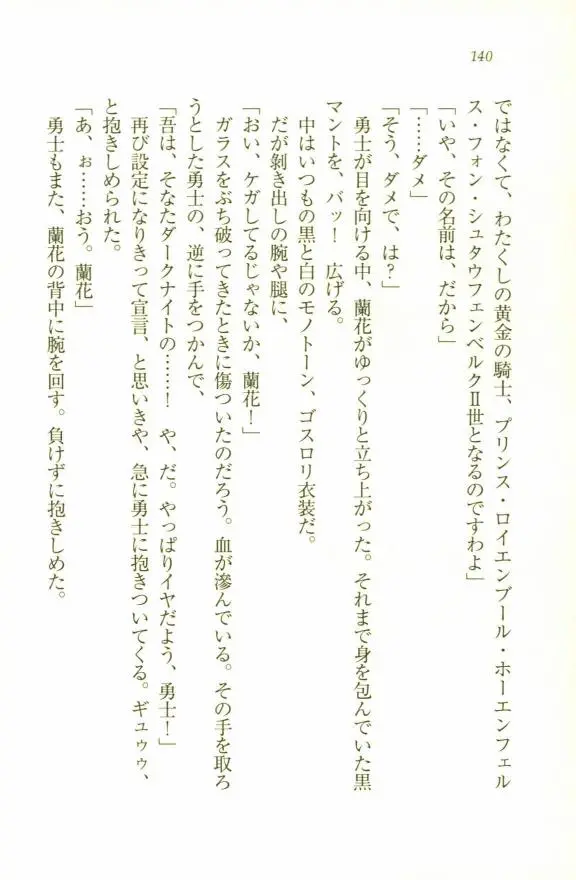 140
ではなくて、わたくしの黄金の騎士、プリンス・ロイエンブール・ホーエンフェル
ス・フォン・シュタウフェンベルクⅡ世となるのですわよ」
「いや、その名前は、だから」
「……ダメ」
「そう、ダメで、は？」
勇士が目を向ける中、蘭花がゆっくりと立ち上がった。それまで身を包んでいた黒
マントを、バッ！　広げる。
中はいつもの黒と白のモノトーン、ゴスロリ衣装だ。
だが剝き出しの腕や腿に、
「おい、ケガしてるじゃないか、蘭花！」
ガラスをぶち破ってきたときに傷ついたのだろう。血が滲んでいる。その手を取ろ
うとした勇士の、逆に手をつかんで、
「吾は、そなたダークナイトの……！　や、だ。やっぱりイヤだよう、勇士！」
再び設定になりきって宣言、と思いきや、急に勇士に抱きついてくる。ギュゥゥ、
と抱きしめられた。
「あ、ぉ……おう。蘭花」
勇士もまた、蘭花の背中に腕を回す。負けずに抱きしめた。